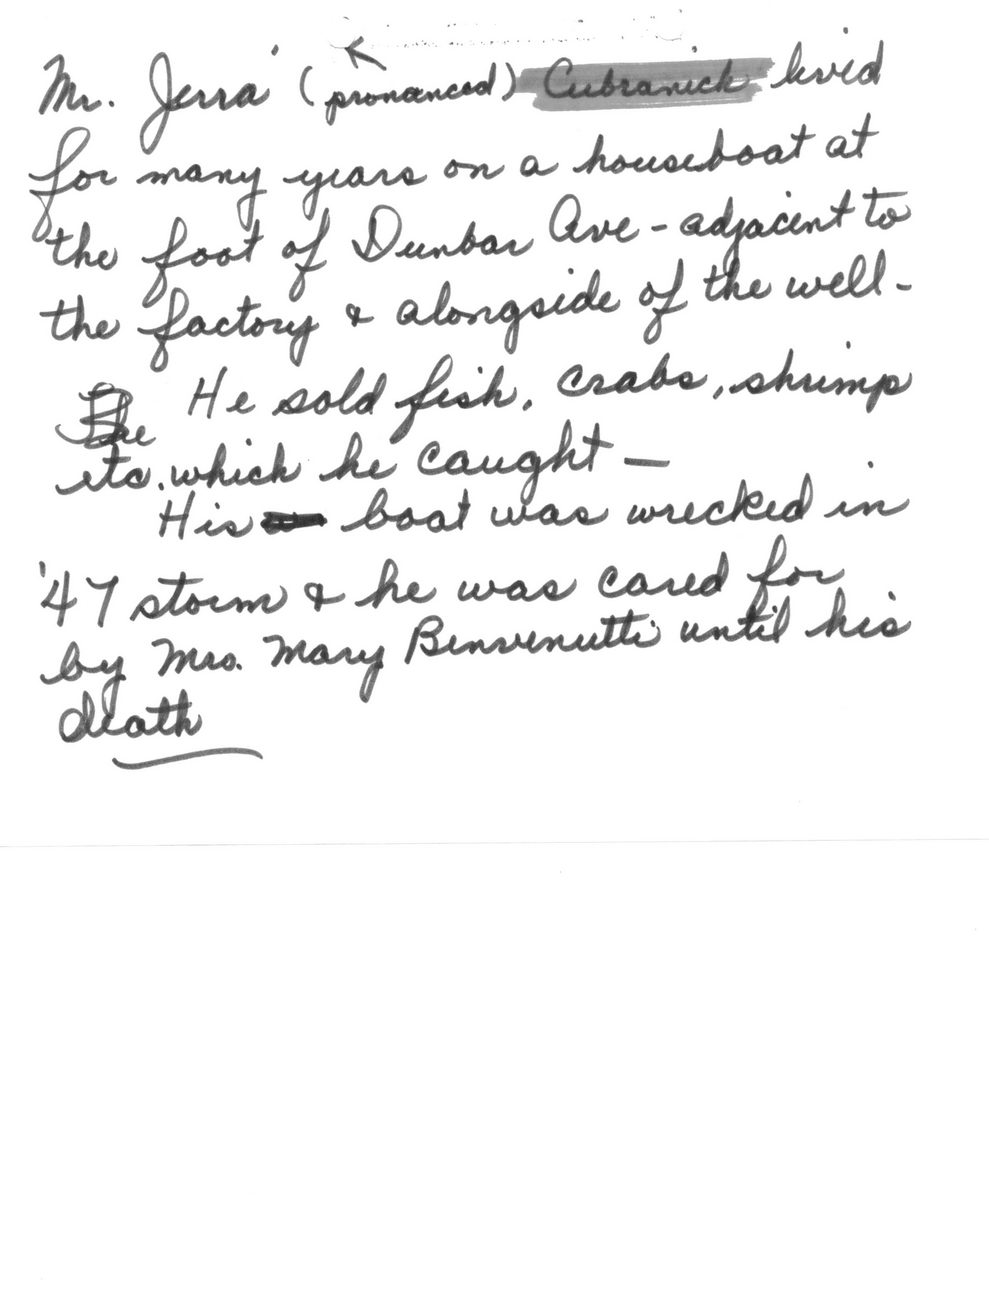 Mr. Jerra' (pronanced) Cubranich lived
for many years on a houseboat at
the foot of Dunbar Ave - adjacent to
the factory & alongside of the well -
He sold fish, crabs, shrimp
etc. which he caught —
His boat was wrecked in
'47 storm & he was cared for
by Mrs. Mary Benvenutti until his
death